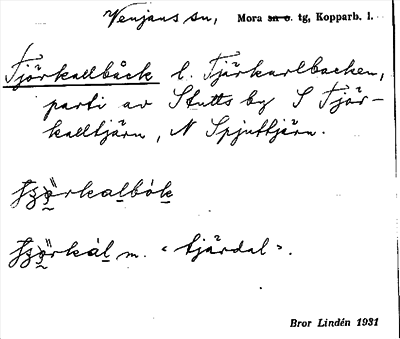 Venjans sn, Mora sn o. tg, Kopparb. l.
Tjärkallbåck l. Tjärkarlbacken,
parti av Stutts by S Tjär-
kalltjärn, N Spjuttjärn.
m. "tjärdal".
Bror Lindén 1931